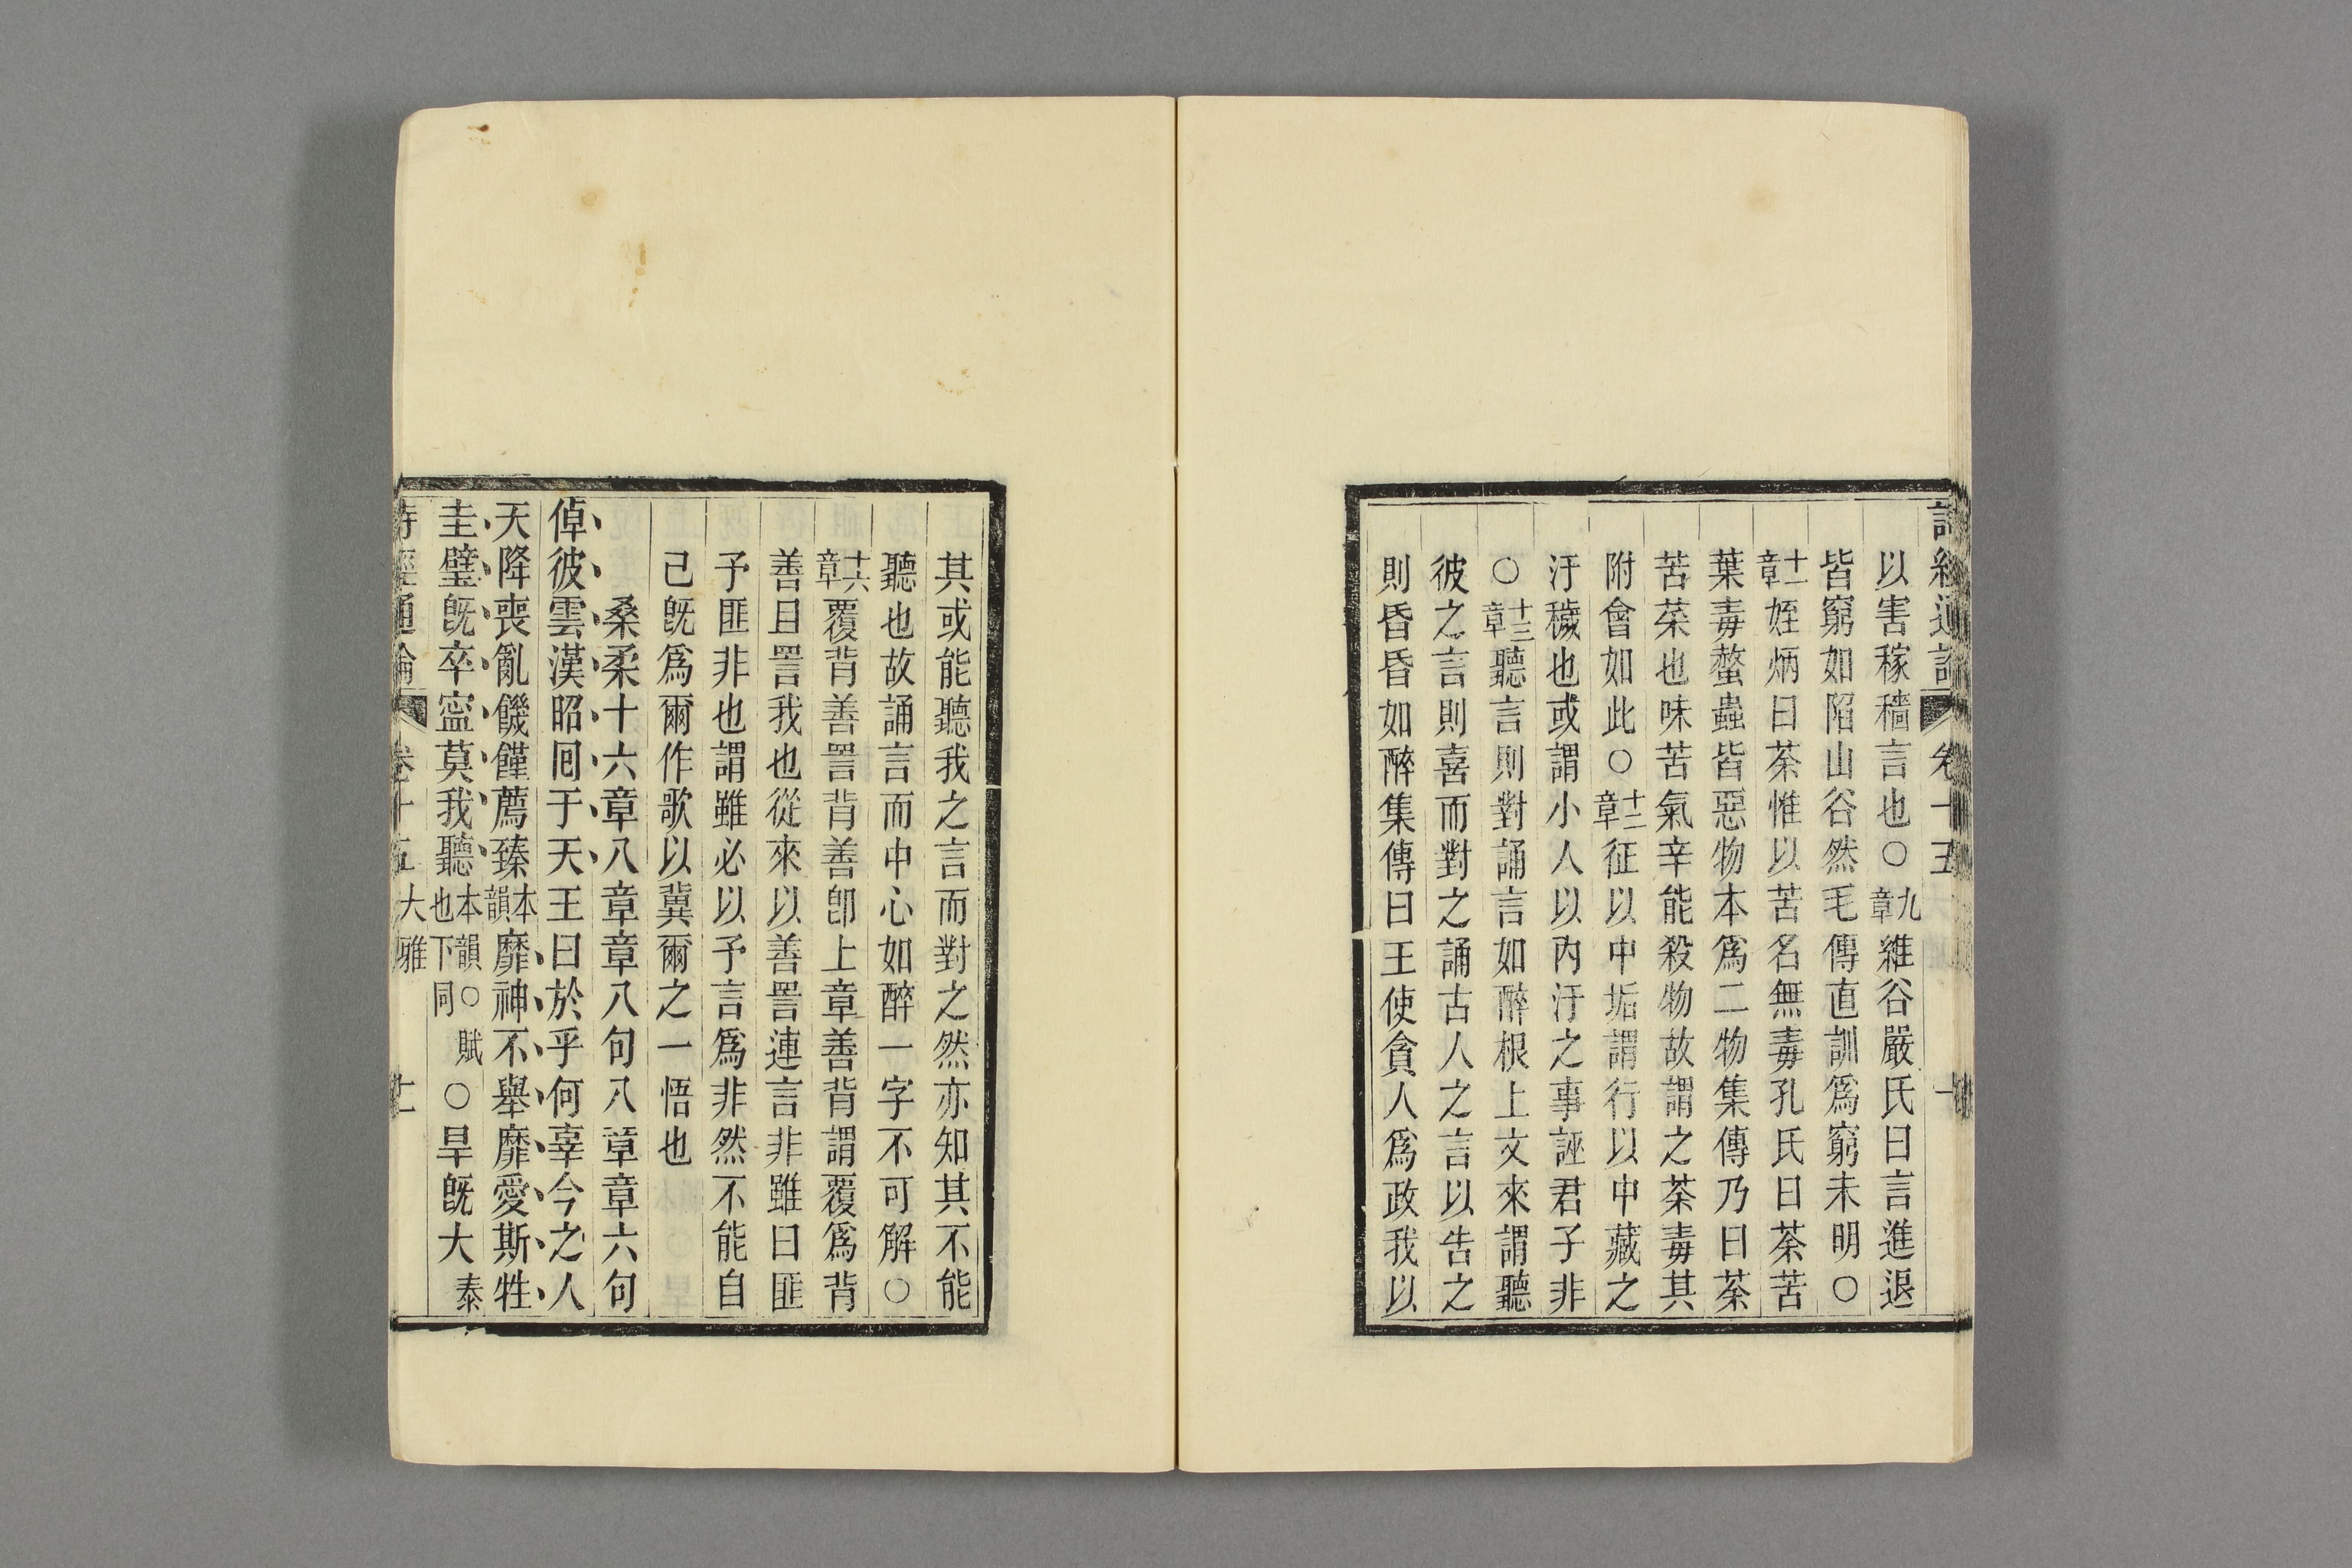 詩經通論 卷十五 十
以害稼穡言也○九章維谷嚴氏曰言進退
皆窮如陷山谷然毛傳直訓爲窮未明○
十一章姪炳曰荼惟以苦名無毒孔氏曰荼苦
葉毒螫蟲皆惡物本爲二物集傳乃曰荼
苦菜也味苦氣辛能殺物故謂之荼毒其
附會如此○十二章征以中垢謂行以中藏之
汙穢也或謂小人以內汙之事誣君子非
○十三章聽言則對誦言如醉根上文來謂聽
彼之言則喜而對之誦古人之言以告之
則昏昏如醉集傳曰王使貪人爲政我以
其或能聽我之言而對之然亦知其不能
聽也故誦言而中心如醉一字不可解○
十六章覆背善詈背善卽上章善背謂覆爲背
善且詈我也從來以善詈連言非雖曰匪
予匪非也謂雖必以予言爲非然不能自
己旣爲爾作歌以冀爾之一悟也
桑柔十六章八章章八句八章章六句
倬彼雲漢昭囘于天王曰於乎何辜今之人
天降喪亂饑饉薦臻本韻靡神不舉靡愛斯牲
圭璧旣卒寍莫我聽本韻○賦也下同○旱旣大泰
詩經通論 卷十五 大雅 十一